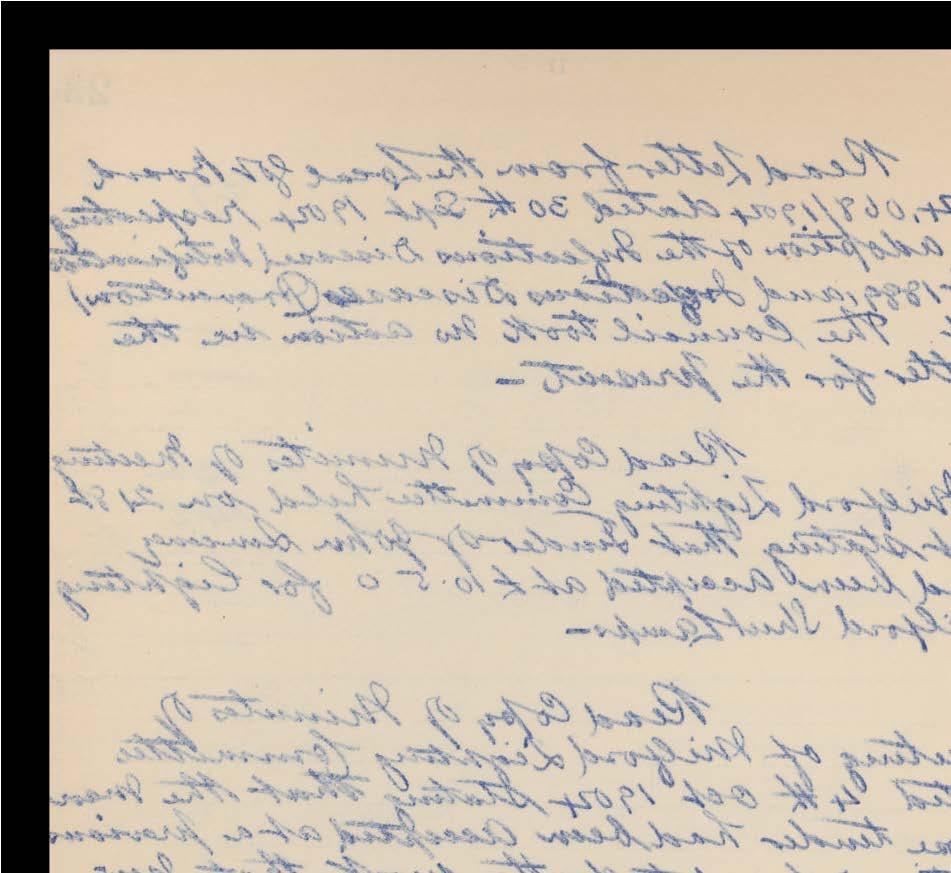 Read Letter from the Local Gvt Board
4.068/1904 dated 30th Sept 1904 respecting
adoption of the Infectious Diseases (Notification
1889 and Infectious Diseases (Prevention)
The Council took no action in the
for the present —
Read Copy of Minutes of Meeting
Milford Lighting Committee held on 21st
stating that tender of John Sweeney
been accepted at £10.5.0 for lighting
Milford Street Lamps —
Read Copy of Minutes of
of Milford Lighting Committee
4th Oct 1904 stating that the man
tender had been accepted at a previous
23